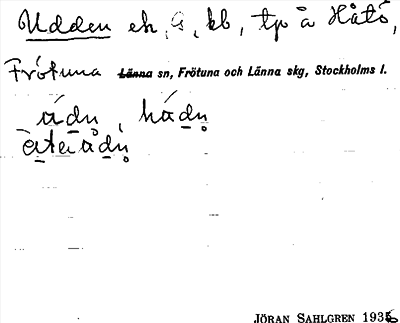 Udden eh, G, kb, tp å Håtö,
Frötuna Länna sn, Frötuna och Länna skg, Stockholms l.
ádn, hádn
JÖRAN SAHLGREN 1936